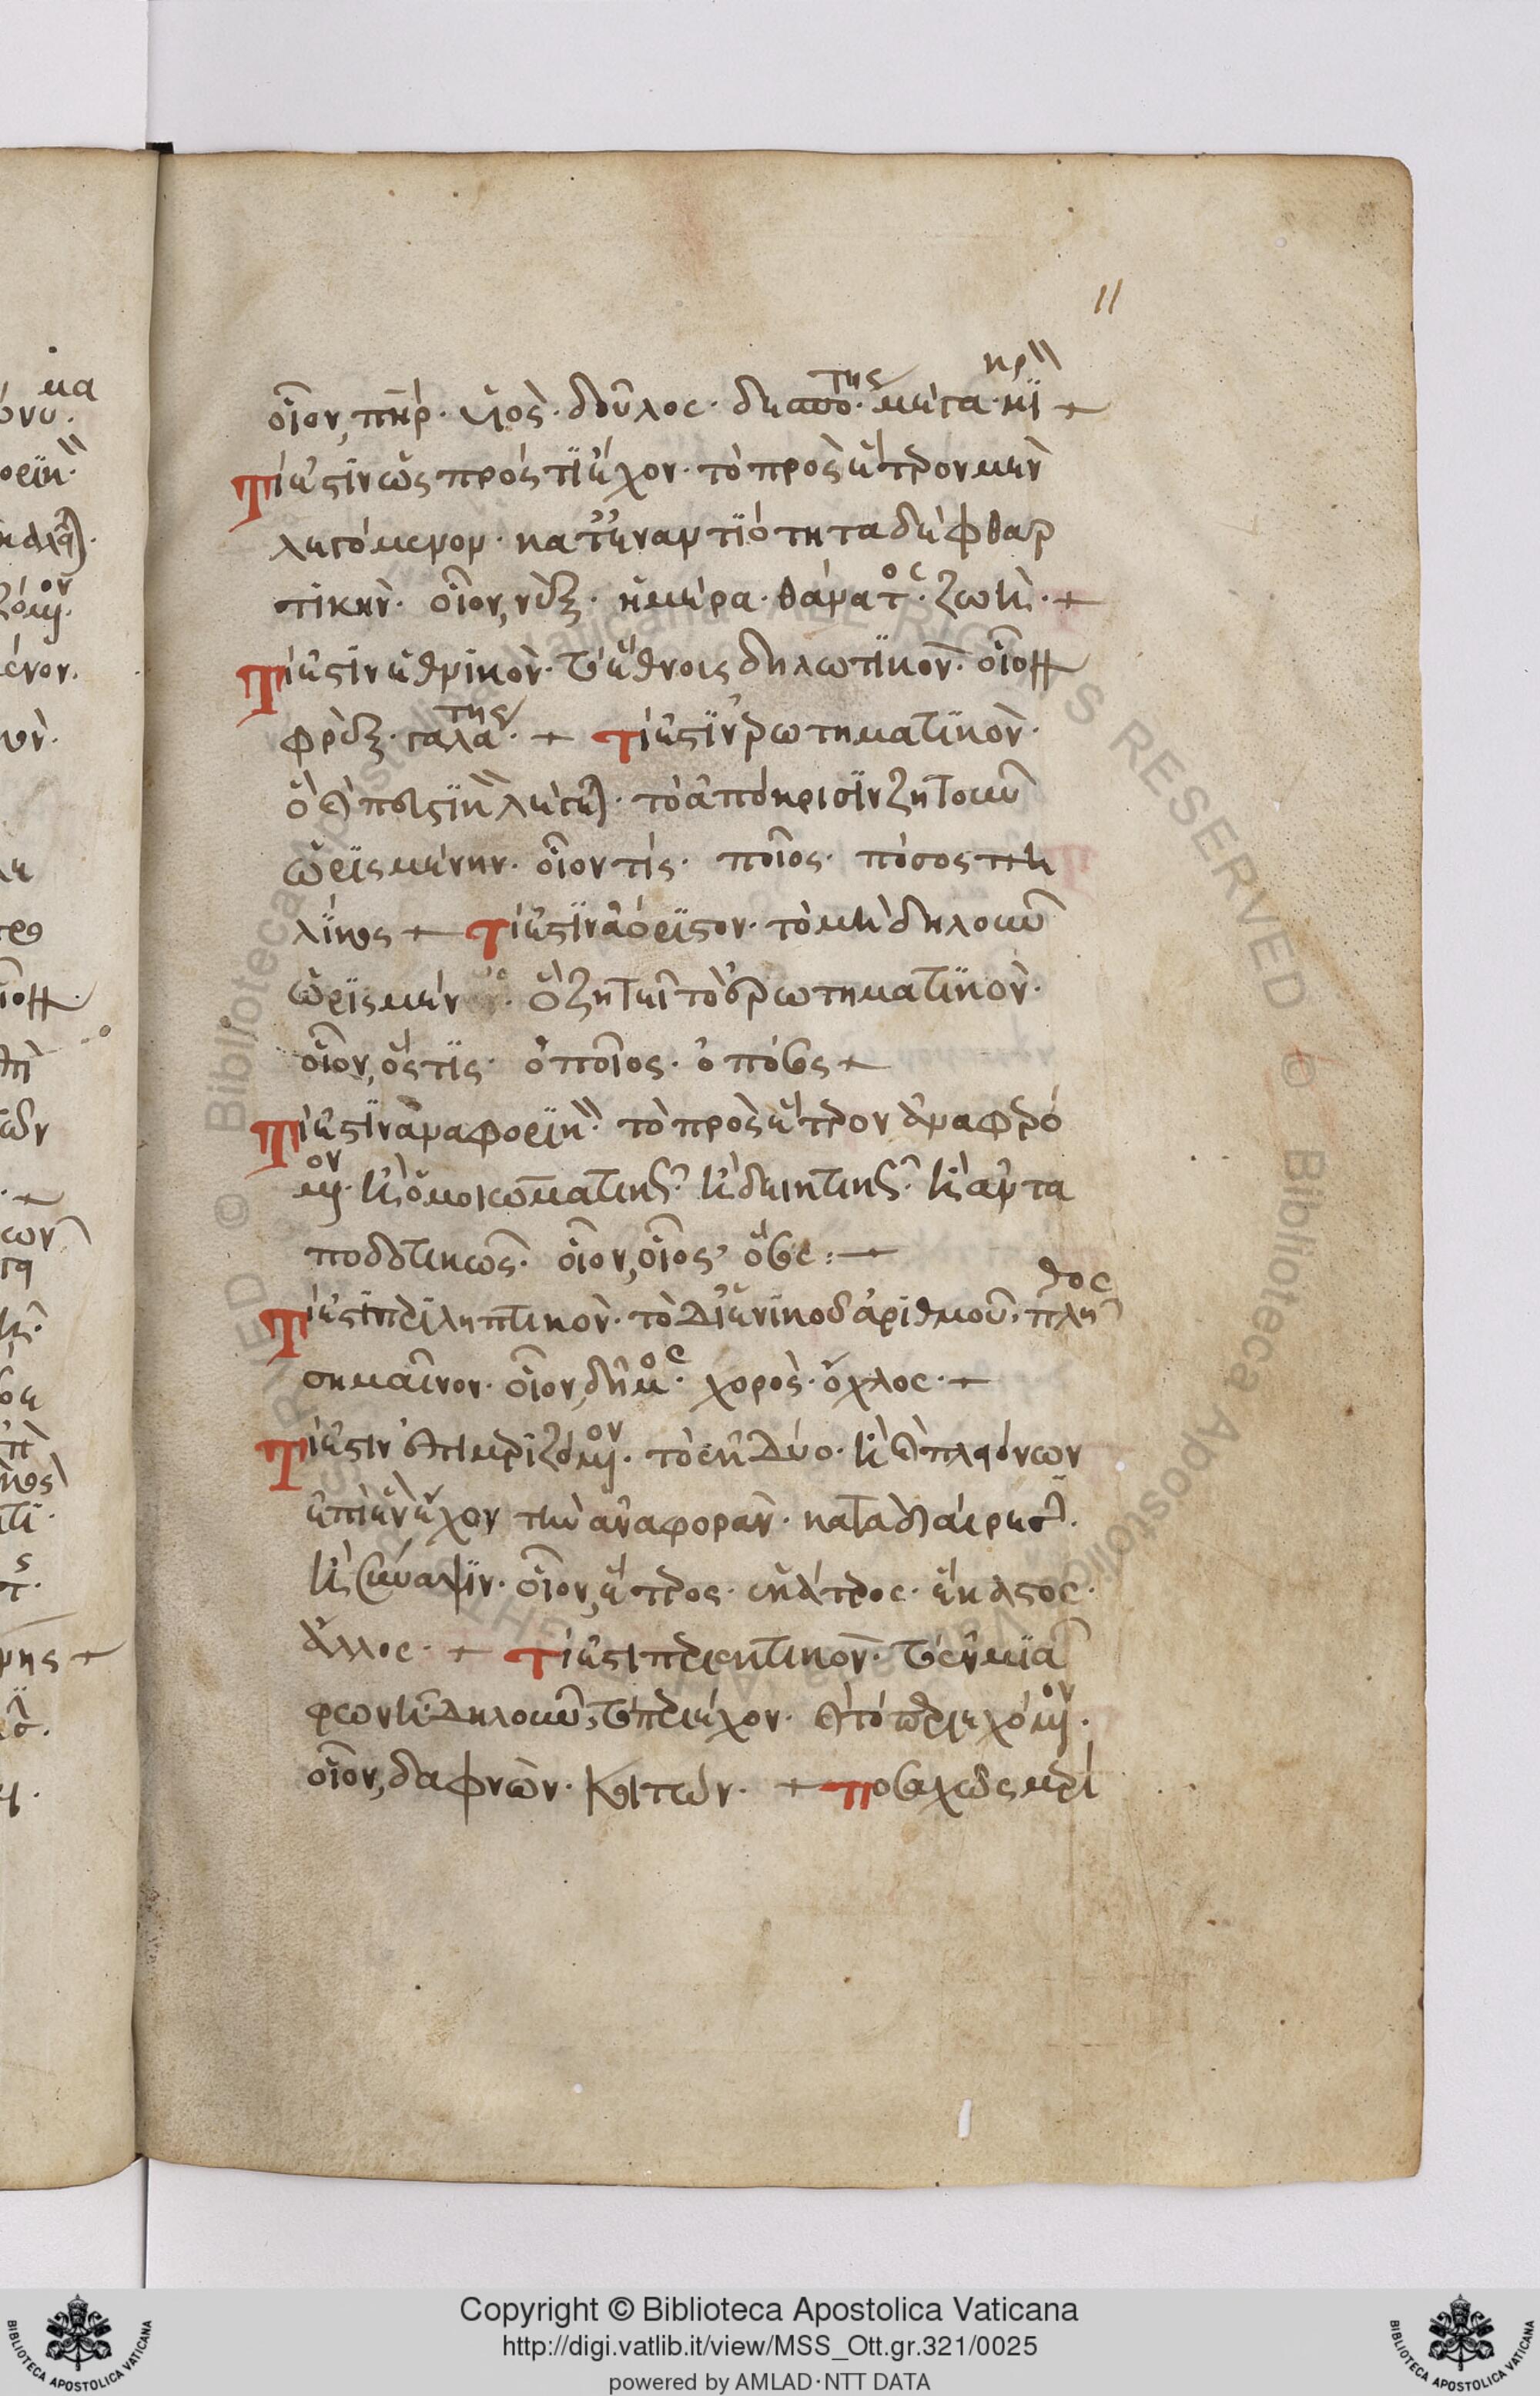 11
οἷον, πηρ. υἱὸς. δοῦλος. δεσπότης. μέγα. μικρ
Τί ἐστιν ὡς πρός τι ἔχον. τὸ πρὸς ἕτερον μὲν
λεγόμενον. κατ' ἐναντιότητα δὲ φθαρ
τικὴν. οἷον, νὺξ. ἡμέρα. θάνατος. ζωὴ.
Τί ἐστιν ἐθνικὸν. τὸ ἔθνους δηλωτικὸν. οἷον
φρὺξ. γαλάτης. τί ἐστιν ἐρωτηματικὸν.
ὃ καὶ πευστικ λέγεται. τὸ ἀπόκρισιν ζητοῦν
ὡρισμένην. οἷον τίς. ποῖος. πόσος πη
λίκος τί ἐστιν ἀόριστον. τὸ μὴ δηλοῦν
ὡρισμέν. ὃ ζητεῖ τὸ ἐρωτηματικὸν.
οἷον, ὅστις. ὁποῖος. ὁπόσος
Τί ἐστιν ἀναφορικ. τὸ πρὸς ἕτερον ἀναφερό
μενον. καὶ ὁμοιωματικῶς. καὶ δεικτικῶς. καὶ ἀντα
ποδοτικῶς. οἷον, οἷος, ὅσος:
Τί ἐστι περιληπτικὸν. τὸ δι' ἑνικοῦ ἀριθμοῦ. πλῆθος
σημαῖνον. οἷον, δῆμος. χορὸς. ὄχλος.
Τί ἐστιν ἐπιμεριζόμενον. τὸ ἐκ δύο. καὶ πλειόνων
ἐπὶ ἓν ἔχον τὴν ἀναφορὰν. κατὰ διαίρεσιν.
καὶ οἷον, ἕτερος. ἑκάτερος. ἕκαστος.
ἄλλος. τί ἐστι περιεκτικὸν. τὸ ἐν μιᾷ
φωνῇ δηλοῦν, τὸ περιέχον. καὶ τὸ περιεχόμενον.
οἷον, δαφνὼν. ποσαχῶς μερί
Copyright © Biblioteca Apostolica Vaticana
http://digi.vatlib.it/view/MSS_Ott.gr.321/0025
powered by AMLAD·NTT DATA